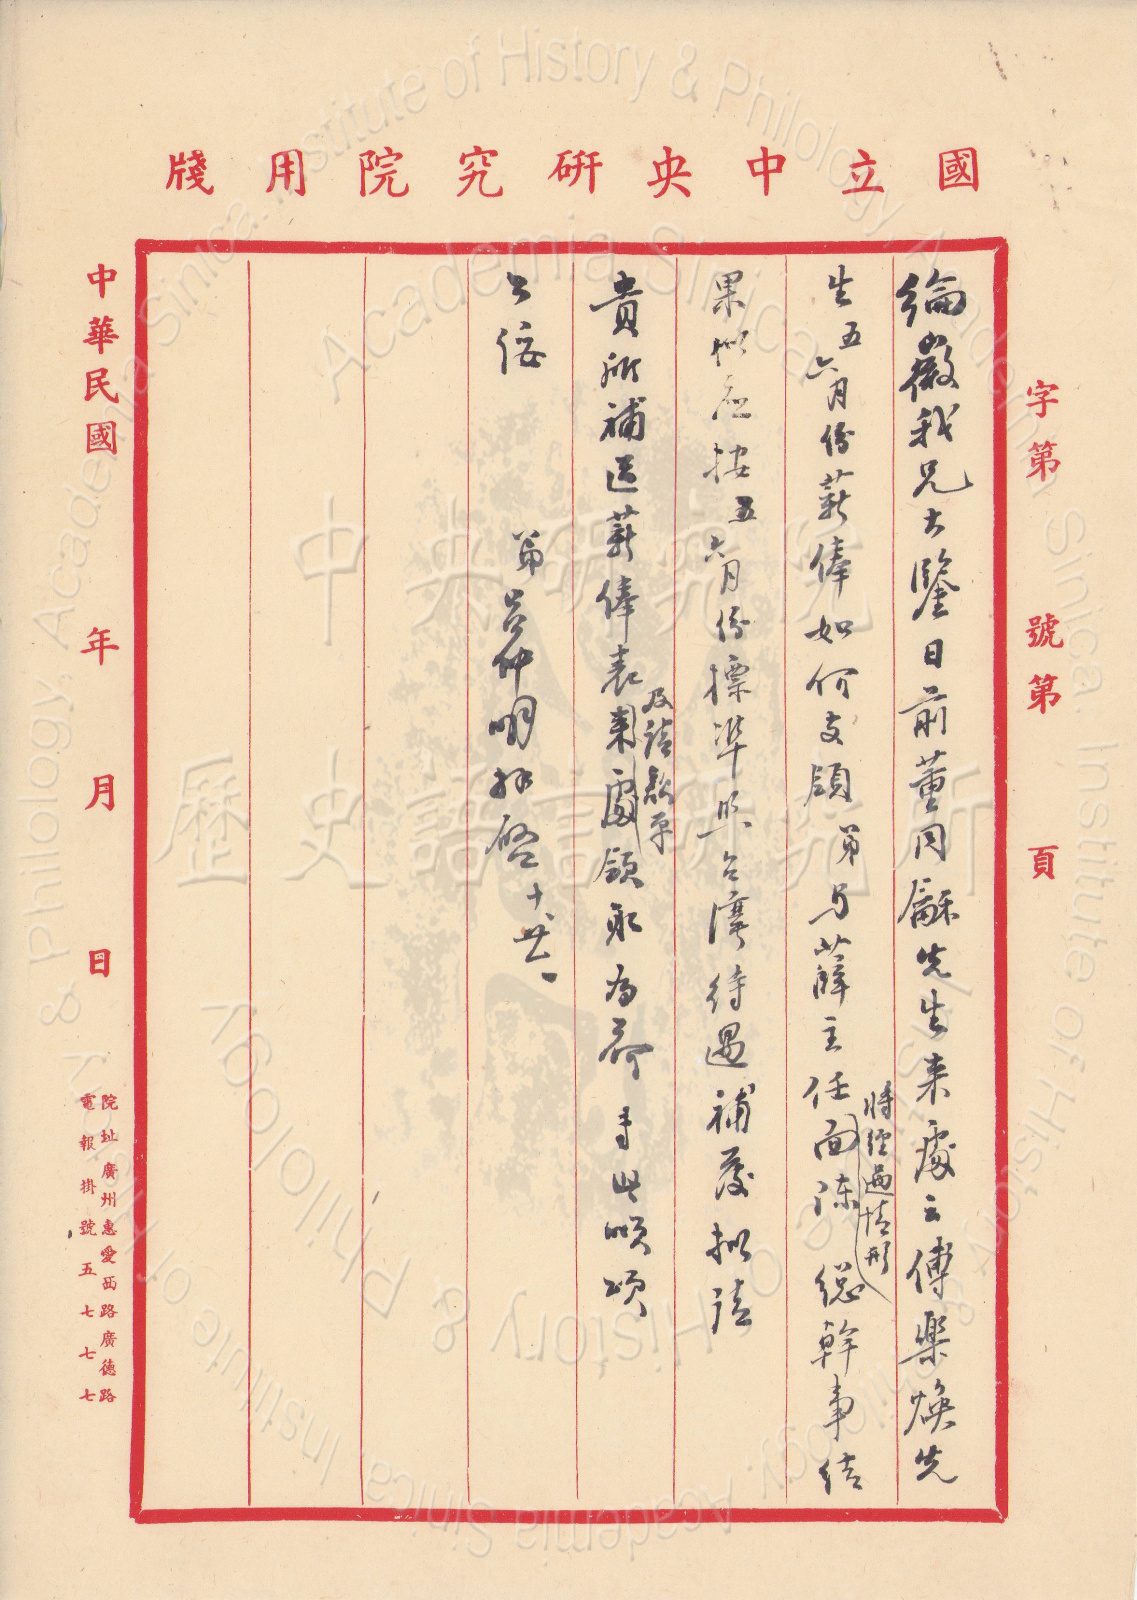 國立中央研究院用牋
字第　號第　頁
綸徽我兄大鑒日前董同龢先生来處云傅樂煥先
生五六月份薪俸如何支領弟与薛主任面陳總幹事結
將經過情形
果似应按五六月份標準照台灣待遇補發拟請
貴所補造薪俸表來處領取为荷 专此順頌
及請款单
公綏
弟呂仲明拜啓 十廿八
中華民國　年　月　日
院址廣州惠愛西路廣德路
電報掛號五七七七
中央研究院
歷史語言研究所
Institute of History & Philology, Academia Sinica